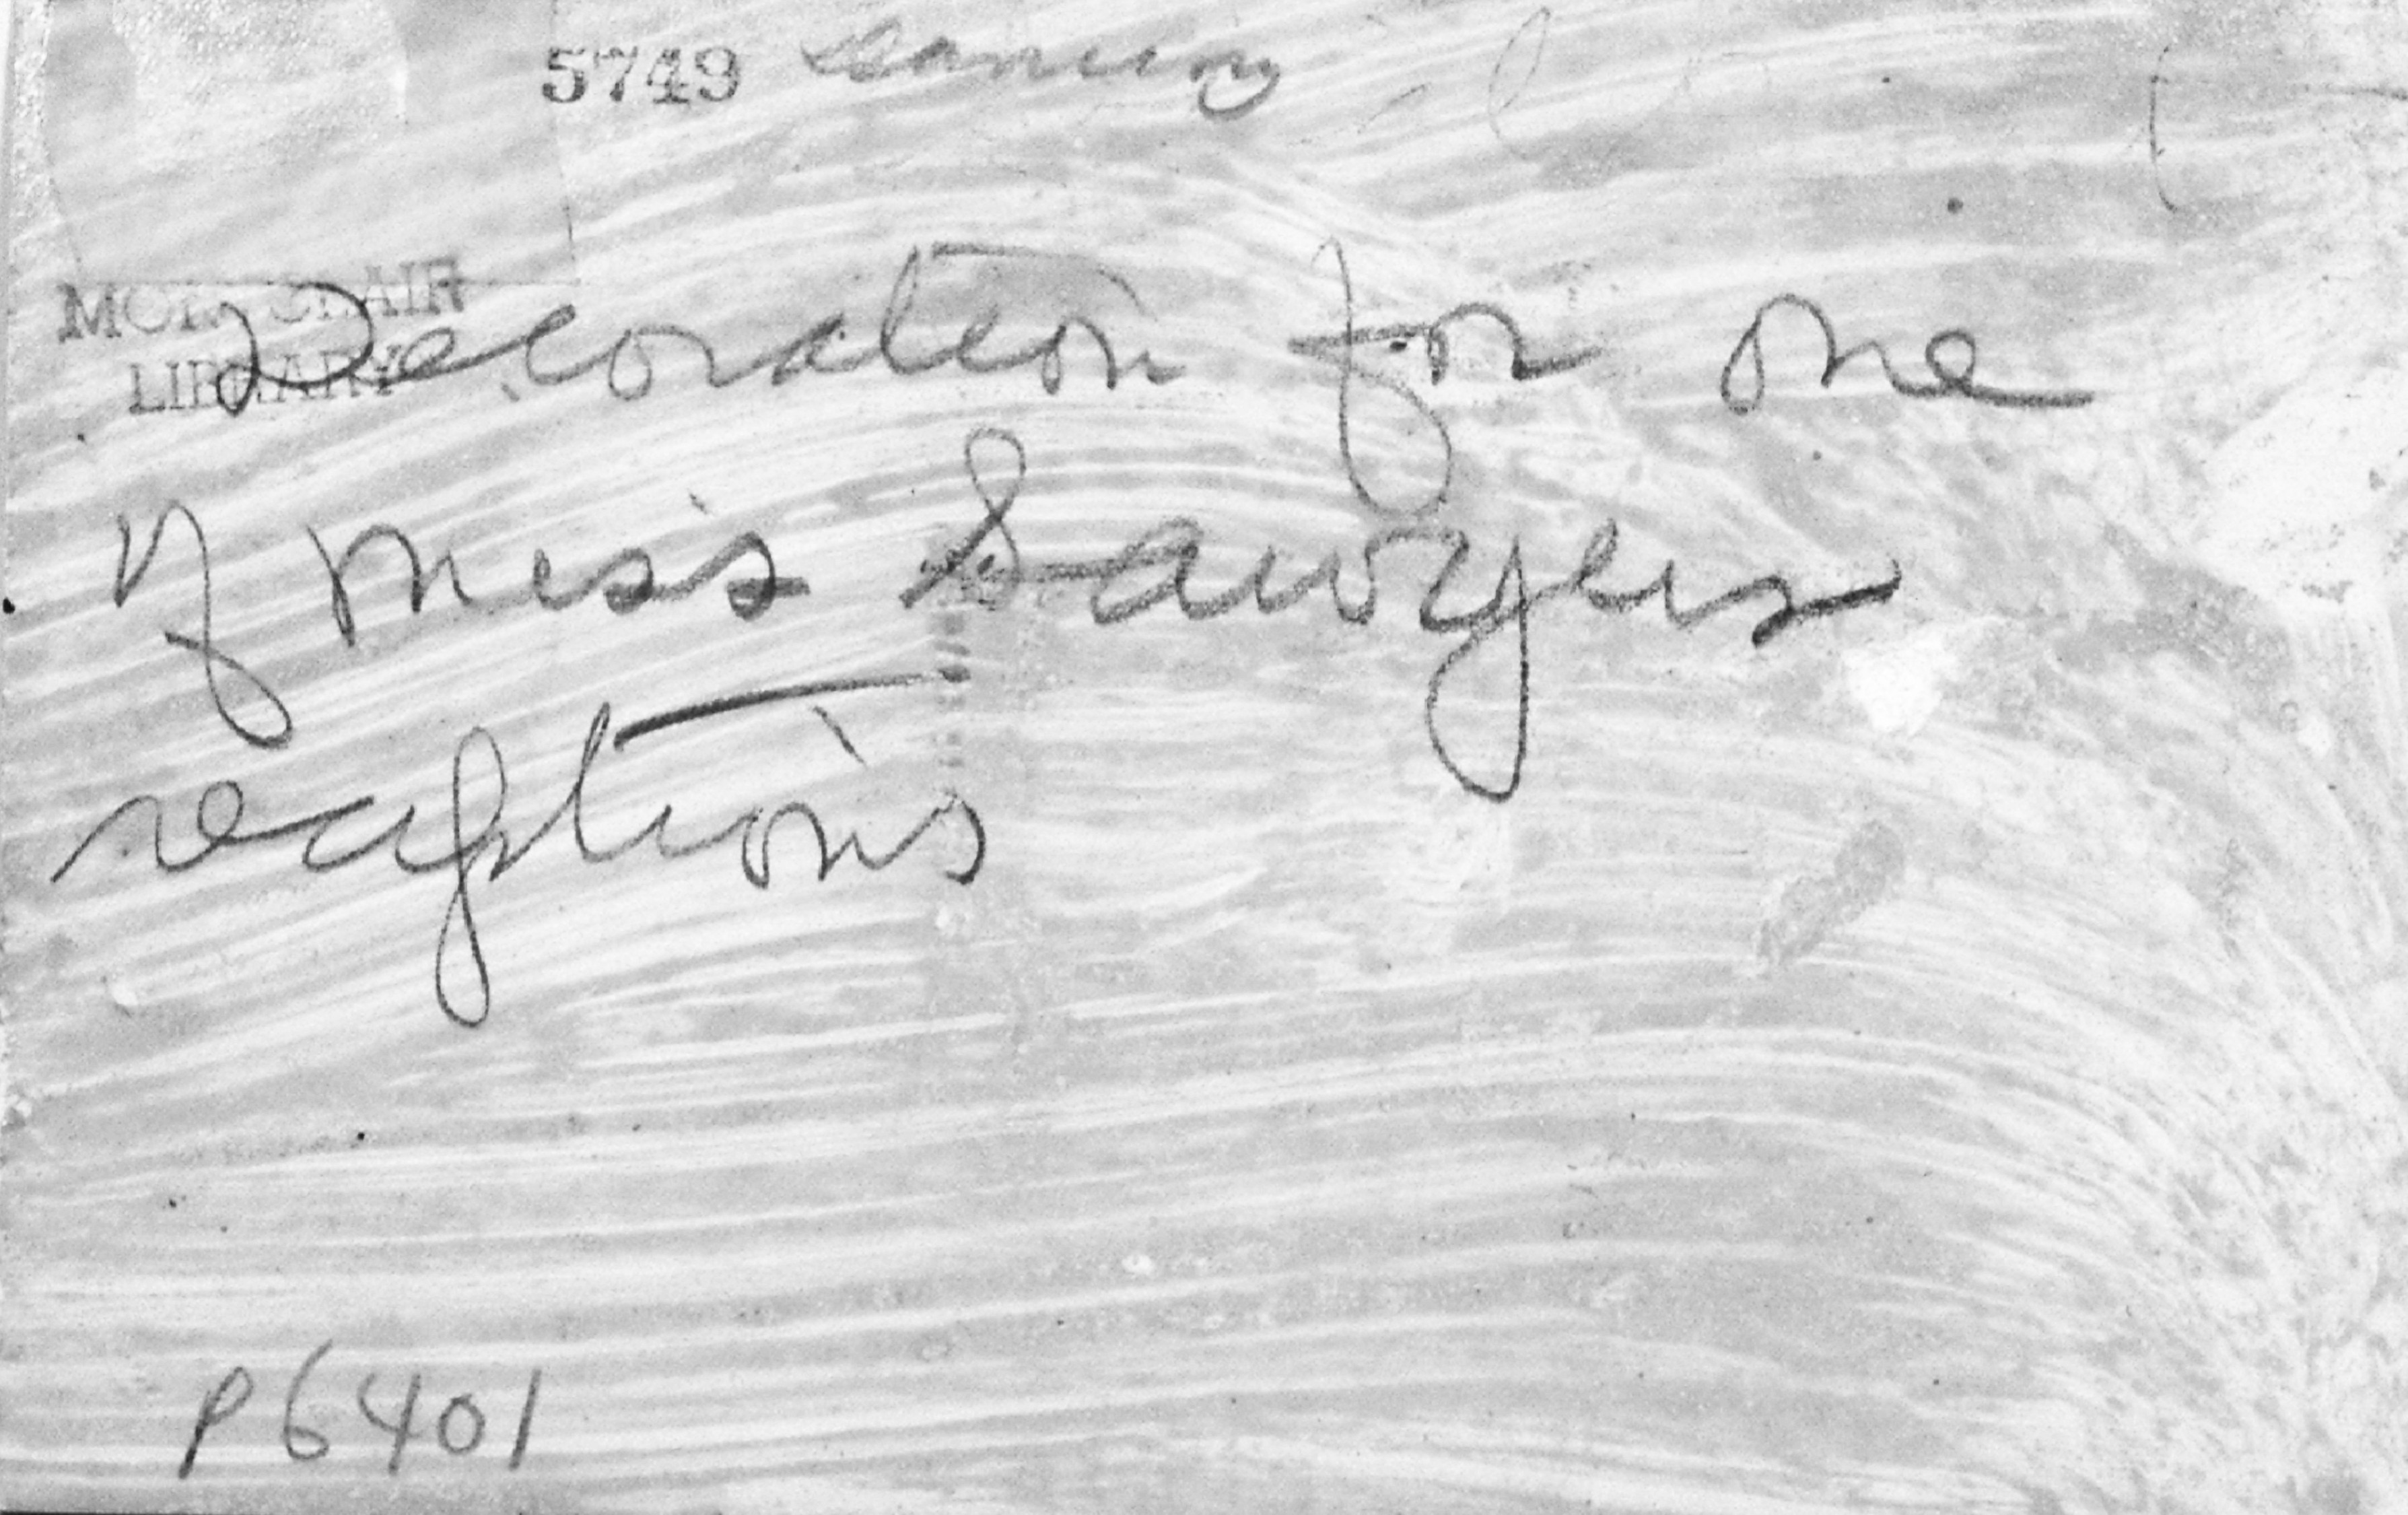 5749
MONTCLAIR
LIBRARY
Decoration for one
of Miss Sawyers
receptions
P6401